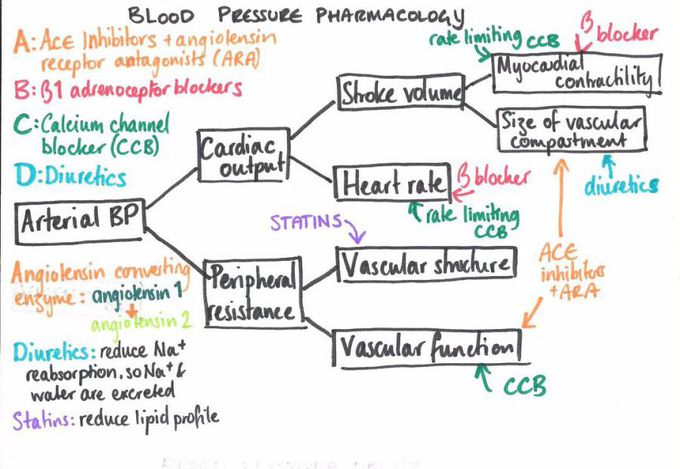 BLOOD PRESSURE PHARMACOLOGY
A: ACE Inhibitors + angiotensin
receptor antagonists (ARA)
B: β1 adrenoceptor blockers
C: Calcium channel
blocker (CCB)
D: Diuretics
Arterial BP
Cardiac
output
Peripheral
resistance
Stroke volume
Heart rate
β blocker
rate limiting
CCB
rate limiting CCB
β
blocker
Myocardial
contractility
Size of vascular
compartment
diuretics
ACE
inhibitors
+ ARA
STATINS
Vascular structure
Vascular function
CCB
Angiotensin converting
enzyme: angiotensin 1
angiotensin 2
Diuretics: reduce Na+
reabsorption, so Na+ &
water are excreted
Statins: reduce lipid profile